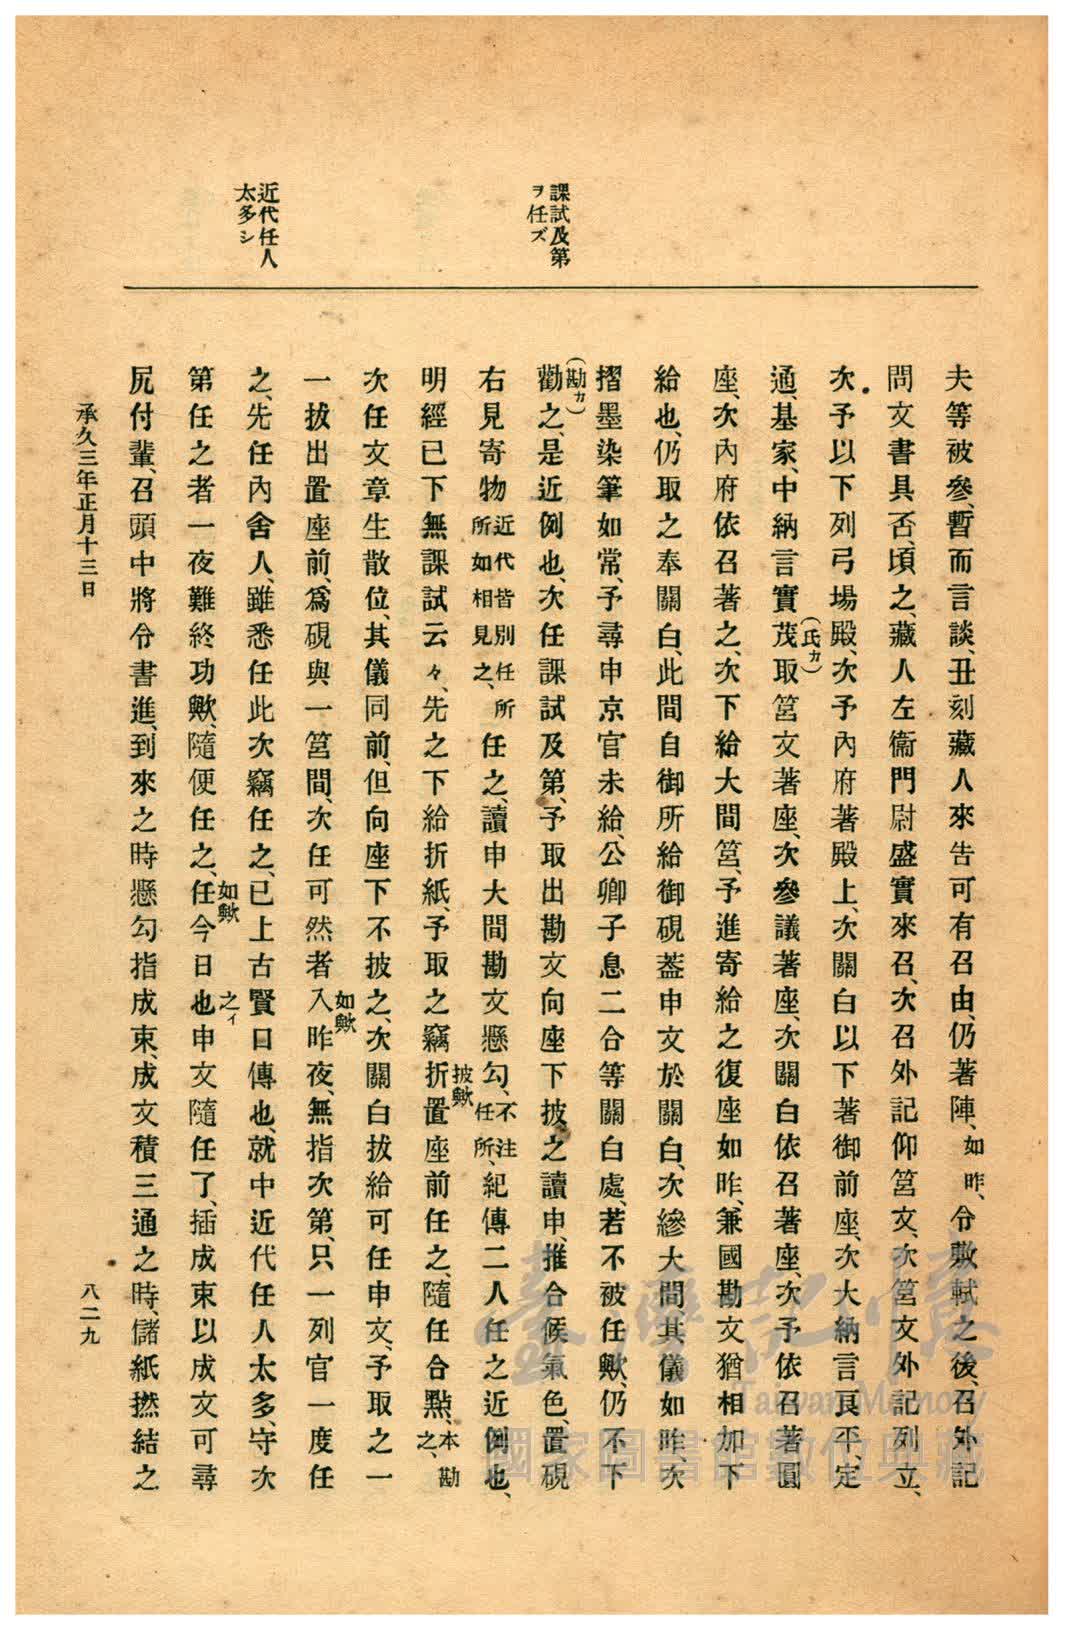 課試及第
ヲ任ズ
近代任人
太多シ
夫等被參、暫而言談、丑刻藏人來告可有召由、仍著陣、如昨、令敷軾之後、召外記
問文書具否、頃之、藏人左衞門尉盛實來召、次召外記仰筥文、次筥文外記列立、
次予以下列弓場殿、次予內府著殿上、次關白以下著御前座、次大納言良平、定
通、基家、中納言實茂(氏カ)取筥文著座、次參議著座、次關白依召著座、次予依召著圓
座、次內府依召著之、次下給大間筥、予進寄給之復座如昨、兼國勘文猶相加下
給也、仍取之奉關白、此間自御所給御硯蓋申文於關白、次縿大間其儀如昨、次
摺墨染筆如常、予尋申京官未給、公卿子息二合等關白處、若不被任歟、仍不下
勸(勘カ)之、是近例也、次任課試及第、予取出勘文向座下披之讀申、推合候氣色、置硯
右見寄物近代皆別任所所如相見之、任之、讀申大間勘文懸勾、不注任所、紀傳二人任之近例也、
明經已下無課試云々、先之下給折紙、予取之竊折披歟置座前任之、隨任合點、本勘之、
次任文章生散位、其儀同前、但向座下不披之、次關白拔給可任申文、予取之一
一拔出置座前、爲硯與一筥間、次任可然者入如歟昨夜、無指次第、只一列官一度任
之、先任內舍人、雖悉任此次竊任之、已上古賢口傳也、就中近代任人太多、守次
第任之者一夜難終功歟、隨便任之、任如歟今日也之イ申文隨任了、插成束以成文可尋
尻付輩、召頭中將令書進、到來之時懸勾指成束、成文積三通之時、儲紙撚結之
承久三年正月十三日
八二九
臺灣記憶
Taiwan Memory
國家圖書館數位典藏